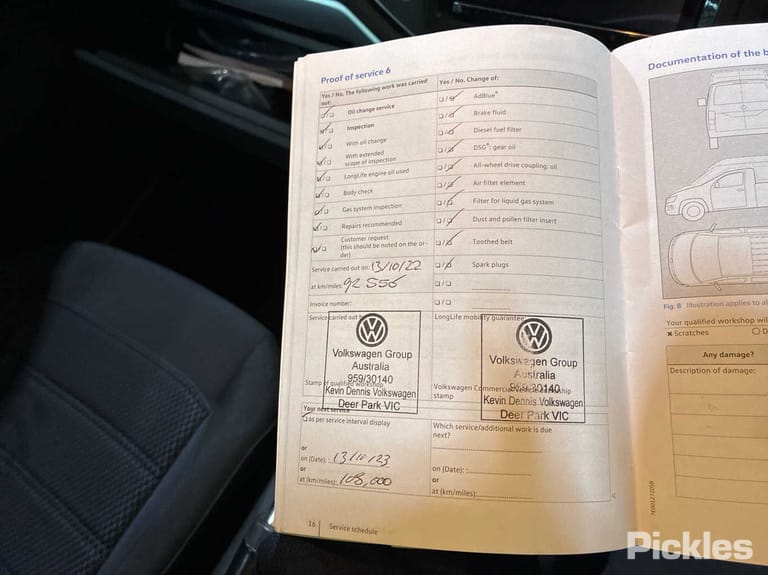 Proof of service 6
Yes / No. The following work was carried out:
Oil change service
Inspection
With oil change
With extended
scope of inspection
LongLife engine oil used
Body check
Gas system inspection
Repairs recommended
Customer request
(this should be noted on the or-
der)
Service carried out on: 13/10/22
at km/miles: 92 556
Invoice number:
Service carried out
Volkswagen Group
Australia
959/30140
Stamp of qualified workshop
Kevin Dennis Volkswagen
Deer Park VIC
Your next service
as per service interval display
or
on (Date): 13/10/23
or
at (km/miles): 108,000
Yes / No. Change of:
AdBlue®
Brake fluid
Diesel fuel filter
DSG®: gear oil
All-wheel drive coupling: oil
Air filter element
Filter for liquid gas system
Dust and pollen filter insert
Toothed belt
Spark plugs
LongLife mobility guarantee
Volkswagen Group
Australia
959/30140
Volkswagen Commercial Vehicles workshop
stamp
Kevin Dennis Volkswagen
Deer Park VIC
Which service/additional work is due
next?
on (Date):
or
at (km/miles):
16 Service schedule
Documentation of the b
Fig. 8 Illustration applies to al
Your qualified workshop wil
× Scratches O D
Any damage?
Description of damage:
Pickles